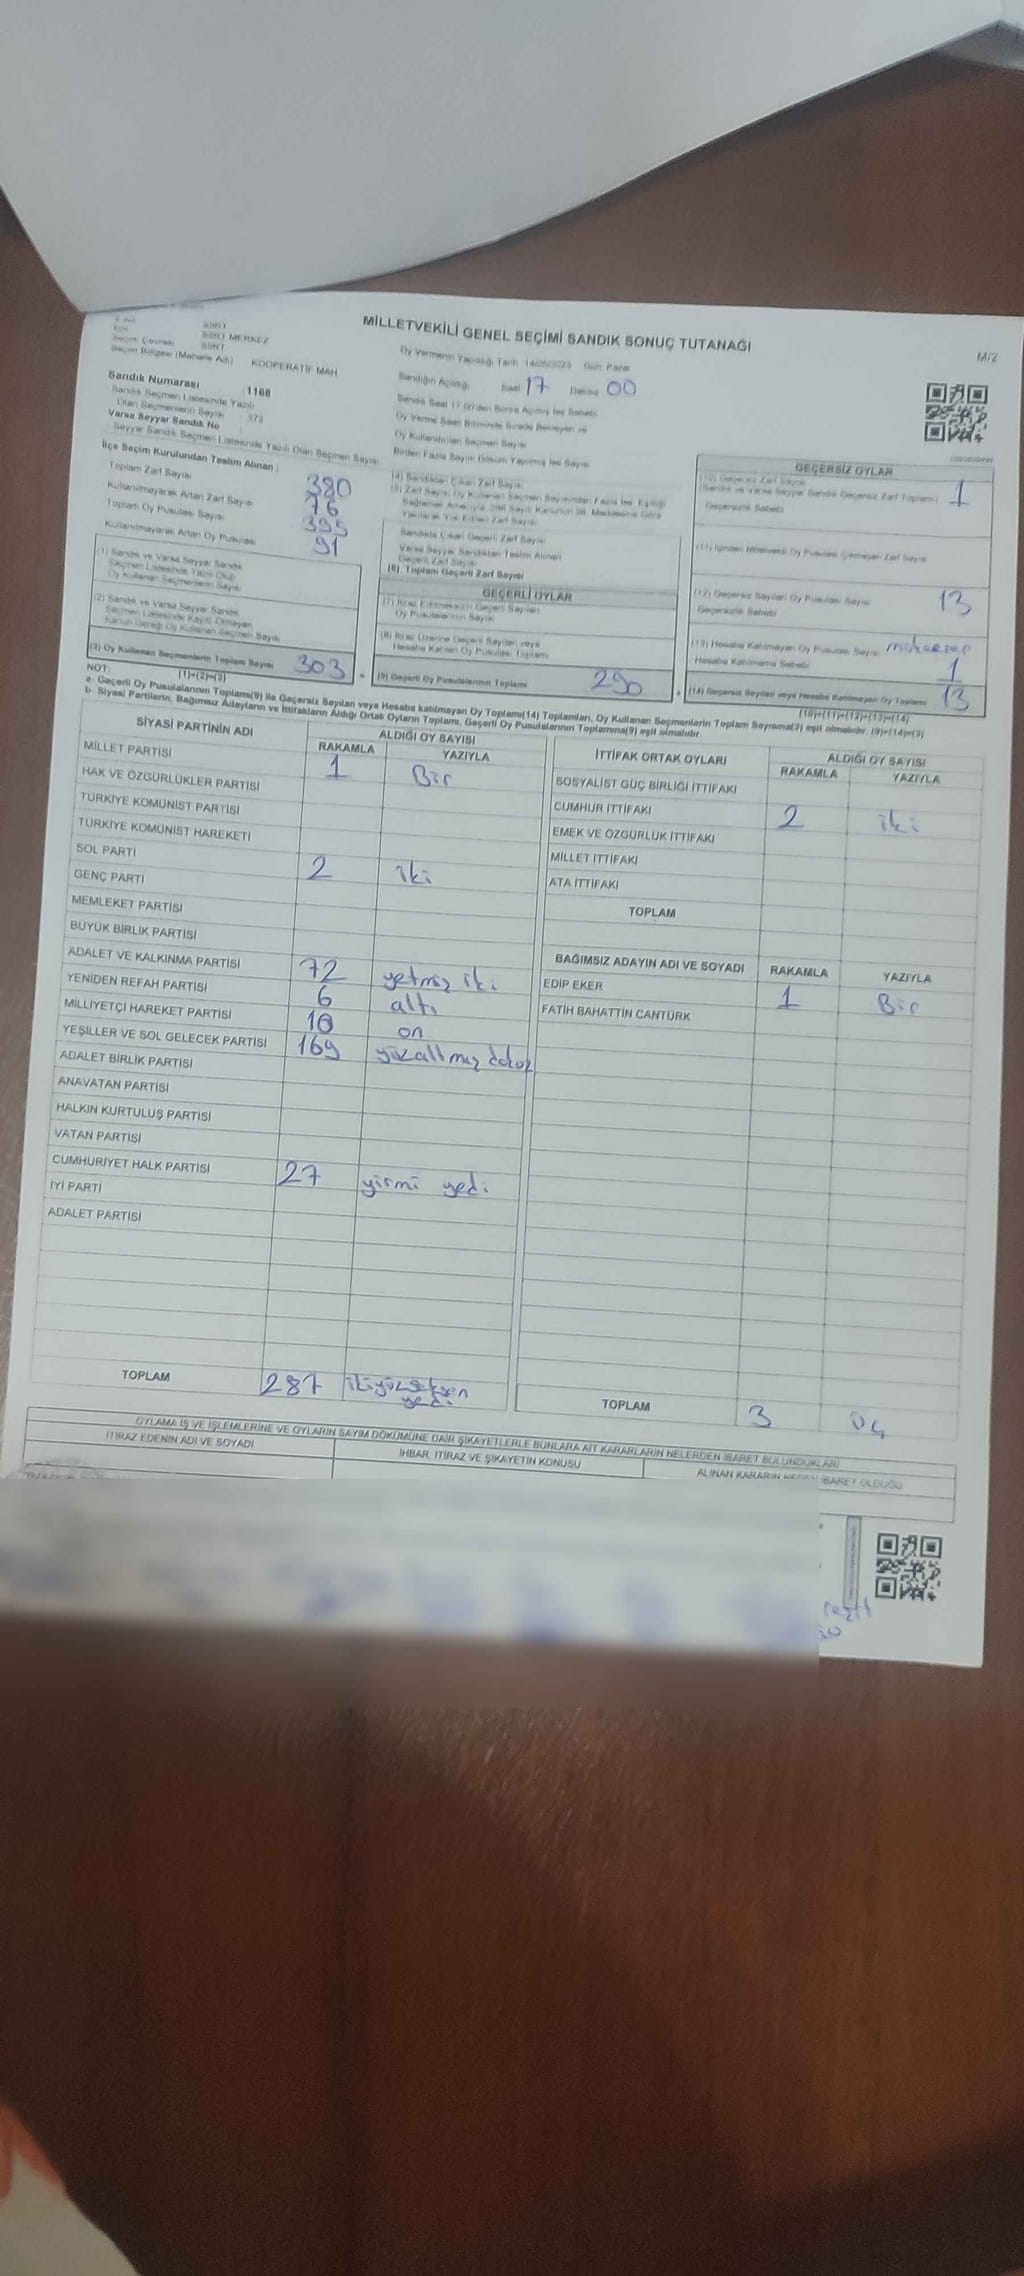 MİLLETVEKİLİ GENEL SEÇİMİ SANDIK SONUÇ TUTANAĞI
M/2
SİİRT
SİİRT MERKEZ
SİİRT
Seçim Bölgesi (Mahalle Adı) KOOPERATİF MAH
Oy Vermenin Yapıldığı Tarih 14/05/2023 Gün: Pazar
Sandığın Açıldığı Saat 17 Dakika 00
Sandık Numarası : 1168
Sandık Seçmen Listesinde Yazılı
Olan Seçmenlerin Sayısı 372
Varsa Seyyar Sandık No
Seyyar Sandık Seçmen Listesinde Yazılı Olan Seçmen Sayısı
İlçe Seçim Kurulundan Teslim Alınan :
Toplam Zarf Sayısı 380
Kullanılmayarak Artan Zarf Sayısı 76
Toplam Oy Pusulası Sayısı 395
Kullanılmayarak Artan Oy Pusulası 91
(1) Sandık ve Varsa Seyyar Sandık
Seçmen Listesinde Yazılı Olup
Oy Kullanan Seçmenlerin Sayısı
(2) Sandık ve Varsa Seyyar Sandık
Seçmen Listesinde Kayıtlı Olmayan
Kanun Gereği Oy Kullanan Seçmen Sayısı
(3) Oy Kullanan Seçmenlerin Toplam Sayısı 303
(1)+(2)=(3)
(4) Sandıktan Çıkan Zarf Sayısı
Sandıkta Çıkan Geçerli Zarf Sayısı
Varsa Seyyar Sandıktan Teslim Alınan
Geçerli Zarf Sayısı
(6) Toplam Geçerli Zarf Sayısı
GEÇERLİ OYLAR
(7) İtiraz Edilmeksizin Geçerli Sayılan
Oy Pusulalarının Sayısı
(8) İtiraz Üzerine Geçerli Sayılan veya
Hesaba Katılan Oy Pusulası Toplamı
(9) Geçerli Oy Pusulalarının Toplamı 290
GEÇERSİZ OYLAR
(10) Geçersiz Zarf Sayısı
(Sandık ve Varsa Seyyar Sandık Geçersiz Zarf Toplamı) 1
Geçersizlik Sebebi
(12) Geçersiz Sayılan Oy Pusulası Sayısı 13
Geçersizlik Sebebi
(13) Hesaba Katılmayan Oy Pusulası Sayısı
Hesaba Katılmama Sebebi 1
(14) Geçersiz Sayılan veya Hesaba Katılmayan Oy Toplamı 13
(10)+(11)+(12)+(13)=(14)
NOT:
a- Geçerli Oy Pusulalarının Toplamı(9) ile Geçersiz Sayılan veya Hesaba katılmayan Oy Toplamı(14) Toplamları, Oy Kullanan Seçmenlerin Toplam Sayısına(3) eşit olmalıdır. (9)+(14)=(3)
b- Siyasi Partilerin, Bağımsız Adayların ve İttifakların Aldığı Ortak Oyların Toplamı, Geçerli Oy Pusulalarının Toplamına(9) eşit olmalıdır.
SİYASİ PARTİNİN ADI ALDIĞI OY SAYISI
RAKAMLA YAZIYLA
MİLLET PARTİSİ 1 Bir
HAK VE ÖZGÜRLÜKLER PARTİSİ
TÜRKİYE KOMÜNİST PARTİSİ
TÜRKİYE KOMÜNİST HAREKETİ
SOL PARTİ
GENÇ PARTİ 2 iki
MEMLEKET PARTİSİ
BÜYÜK BİRLİK PARTİSİ
ADALET VE KALKINMA PARTİSİ 72 yetmiş iki
YENİDEN REFAH PARTİSİ 6 altı
MİLLİYETÇİ HAREKET PARTİSİ 10 on
YEŞİLLER VE SOL GELECEK PARTİSİ 169 yüzaltmış dokuz
ADALET BİRLİK PARTİSİ
ANAVATAN PARTİSİ
HALKIN KURTULUŞ PARTİSİ
VATAN PARTİSİ
CUMHURİYET HALK PARTİSİ 27 yirmi yedi
İYİ PARTİ
ADALET PARTİSİ
TOPLAM 287 ikiyüzseksen
yedi
İTTİFAK ORTAK OYLARI ALDIĞI OY SAYISI
RAKAMLA YAZIYLA
SOSYALİST GÜÇ BİRLİĞİ İTTİFAKI
CUMHUR İTTİFAKI 2 iki
EMEK VE ÖZGÜRLÜK İTTİFAKI
MİLLET İTTİFAKI
ATA İTTİFAKI
TOPLAM
BAĞIMSIZ ADAYIN ADI VE SOYADI RAKAMLA YAZIYLA
EDİP EKER 1 Bir
FATİH BAHATTİN CANTÜRK
TOPLAM 3 üç
OYLAMA İŞ VE İŞLEMLERİNE VE OYLARIN SAYIM DÖKÜMÜNE DAİR ŞİKAYETLERLE BUNLARA AİT KARARLARIN NELERDEN İBARET BULUNDUKLARI
İTİRAZ EDENİN ADI VE SOYADI
İHBAR, İTİRAZ VE ŞİKAYETİN KONUSU
ALINAN KARARIN NEDEN İBARET OLDUĞU